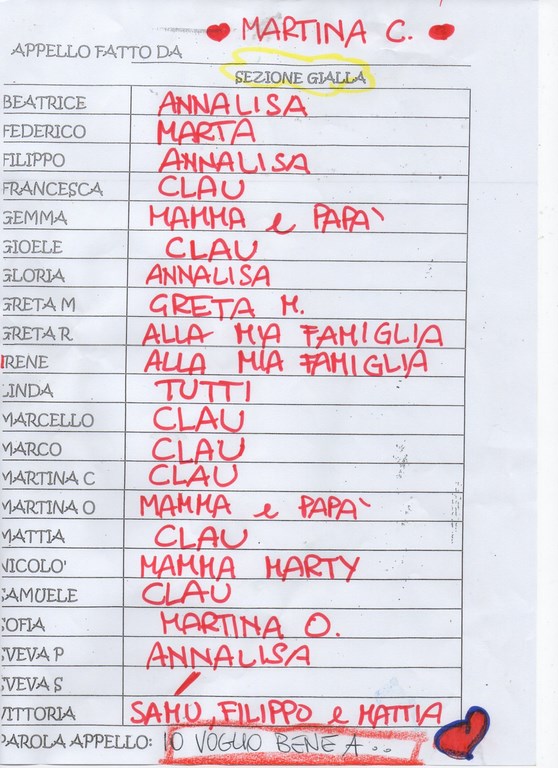 MARTINA C.
APPELLO FATTO DA
SEZIONE GIALLA
BEATRICE ANNALISA
FEDERICO MARTA
FILIPPO ANNALISA
FRANCESCA CLAU
GEMMA MAMMA e PAPA'
GIOELE CLAU
GLORIA ANNALISA
GRETA M GRETA M.
GRETA R ALLA MIA FAMIGLIA
IRENE ALLA MIA FAMIGLIA
LINDA TUTTI
MARCELLO CLAU
MARCO CLAU
MARTINA C CLAU
MARTINA O MAMMA e PAPA'
MATTIA CLAU
NICOLO' MAMMA MARTY
SAMUELE CLAU
SOFIA MARTINA O.
SVEVA P ANNALISA
SVEVA S /
VITTORIA SAMU, FILIPPO e MATTIA
PAROLA APPELLO: IO VOGLIO BENE A...